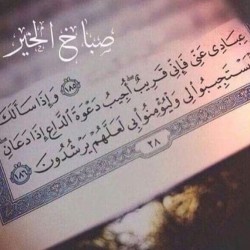 صباح الخير
وَإِذَا سَأَلَكَ
عِبَادِي عَنِّي فَإِنِّي قَرِيبٌ أُجِيبُ دَعْوَةَ الدَّاعِ إِذَا دَعَانِ
فَلْيَسْتَجِيبُوا لِي وَلْيُؤْمِنُوا بِي لَعَلَّهُمْ يَرْشُدُونَ ١٨٦
٢٨